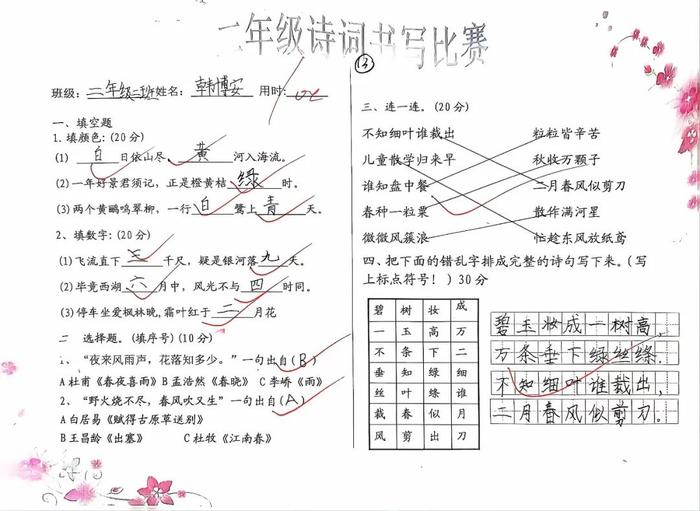 二年级诗词书写比赛
班级：二年级二班姓名：韩博安 用时：
一、填空题
1. 填颜色：(20 分)
(1) 白日依山尽，黄河入海流。
(2) 一年好景君须记，正是橙黄桔绿时。
(3) 两个黄鹂鸣翠柳，一行白鹭上青天。
2、填数字：(20 分)
(1) 飞流直下三千尺，疑是银河落九天。
(2) 毕竟西湖六月中，风光不与四时同。
(3) 停车坐爱枫林晚,霜叶红于二月花
二 选择题。(填序号) (10 分)
1、“夜来风雨声，花落知多少。”一句出自(B)
A 杜甫《春夜喜雨》B 孟浩然《春晓》 C 李峤《雨》
2、“野火烧不尽，春风吹又生”一句出自(A)
A 白居易《赋得古原草送别》
B 王昌龄《出塞》 C 杜牧《江南春》
13
三、连一连。(20 分)
不知细叶谁裁出 粒粒皆辛苦
儿童散学归来早 秋收万颗子
谁知盘中餐 二月春风似剪刀
春种一粒粟 散作满河星
微微风簇浪 忙趁东风放纸鸢
四、把下面的错乱字排成完整的诗句写下来。(写
上标点符号！) 30 分
碧 树 妆 成
一 玉 高 万
不 条 下 二
垂 知 绿 细
丝 叶 绦 谁
裁 春 似 月
风 剪 出 刀
碧玉妆成一树高，
万条垂下绿丝绦。
不知细叶谁裁出，
二月春风似剪刀。